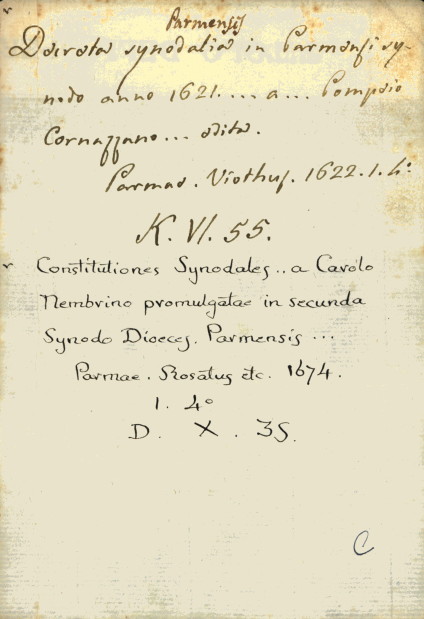 Parmensis
Decreta synodalia in Parmensi sy-
nodo anno 1621. ... a ... Pompeio
Cornazzano ... edita.
Parmae. Viothus. 1622. 1. 4°.
K. VI. 55.
Constitutiones Synodales .. a Carolo
Nembrino promulgatae in secunda
Synodo Dioeces. Parmensis ...
Parmae. Rosatus etc. 1674.
1. 4°
D. X. 35.
C